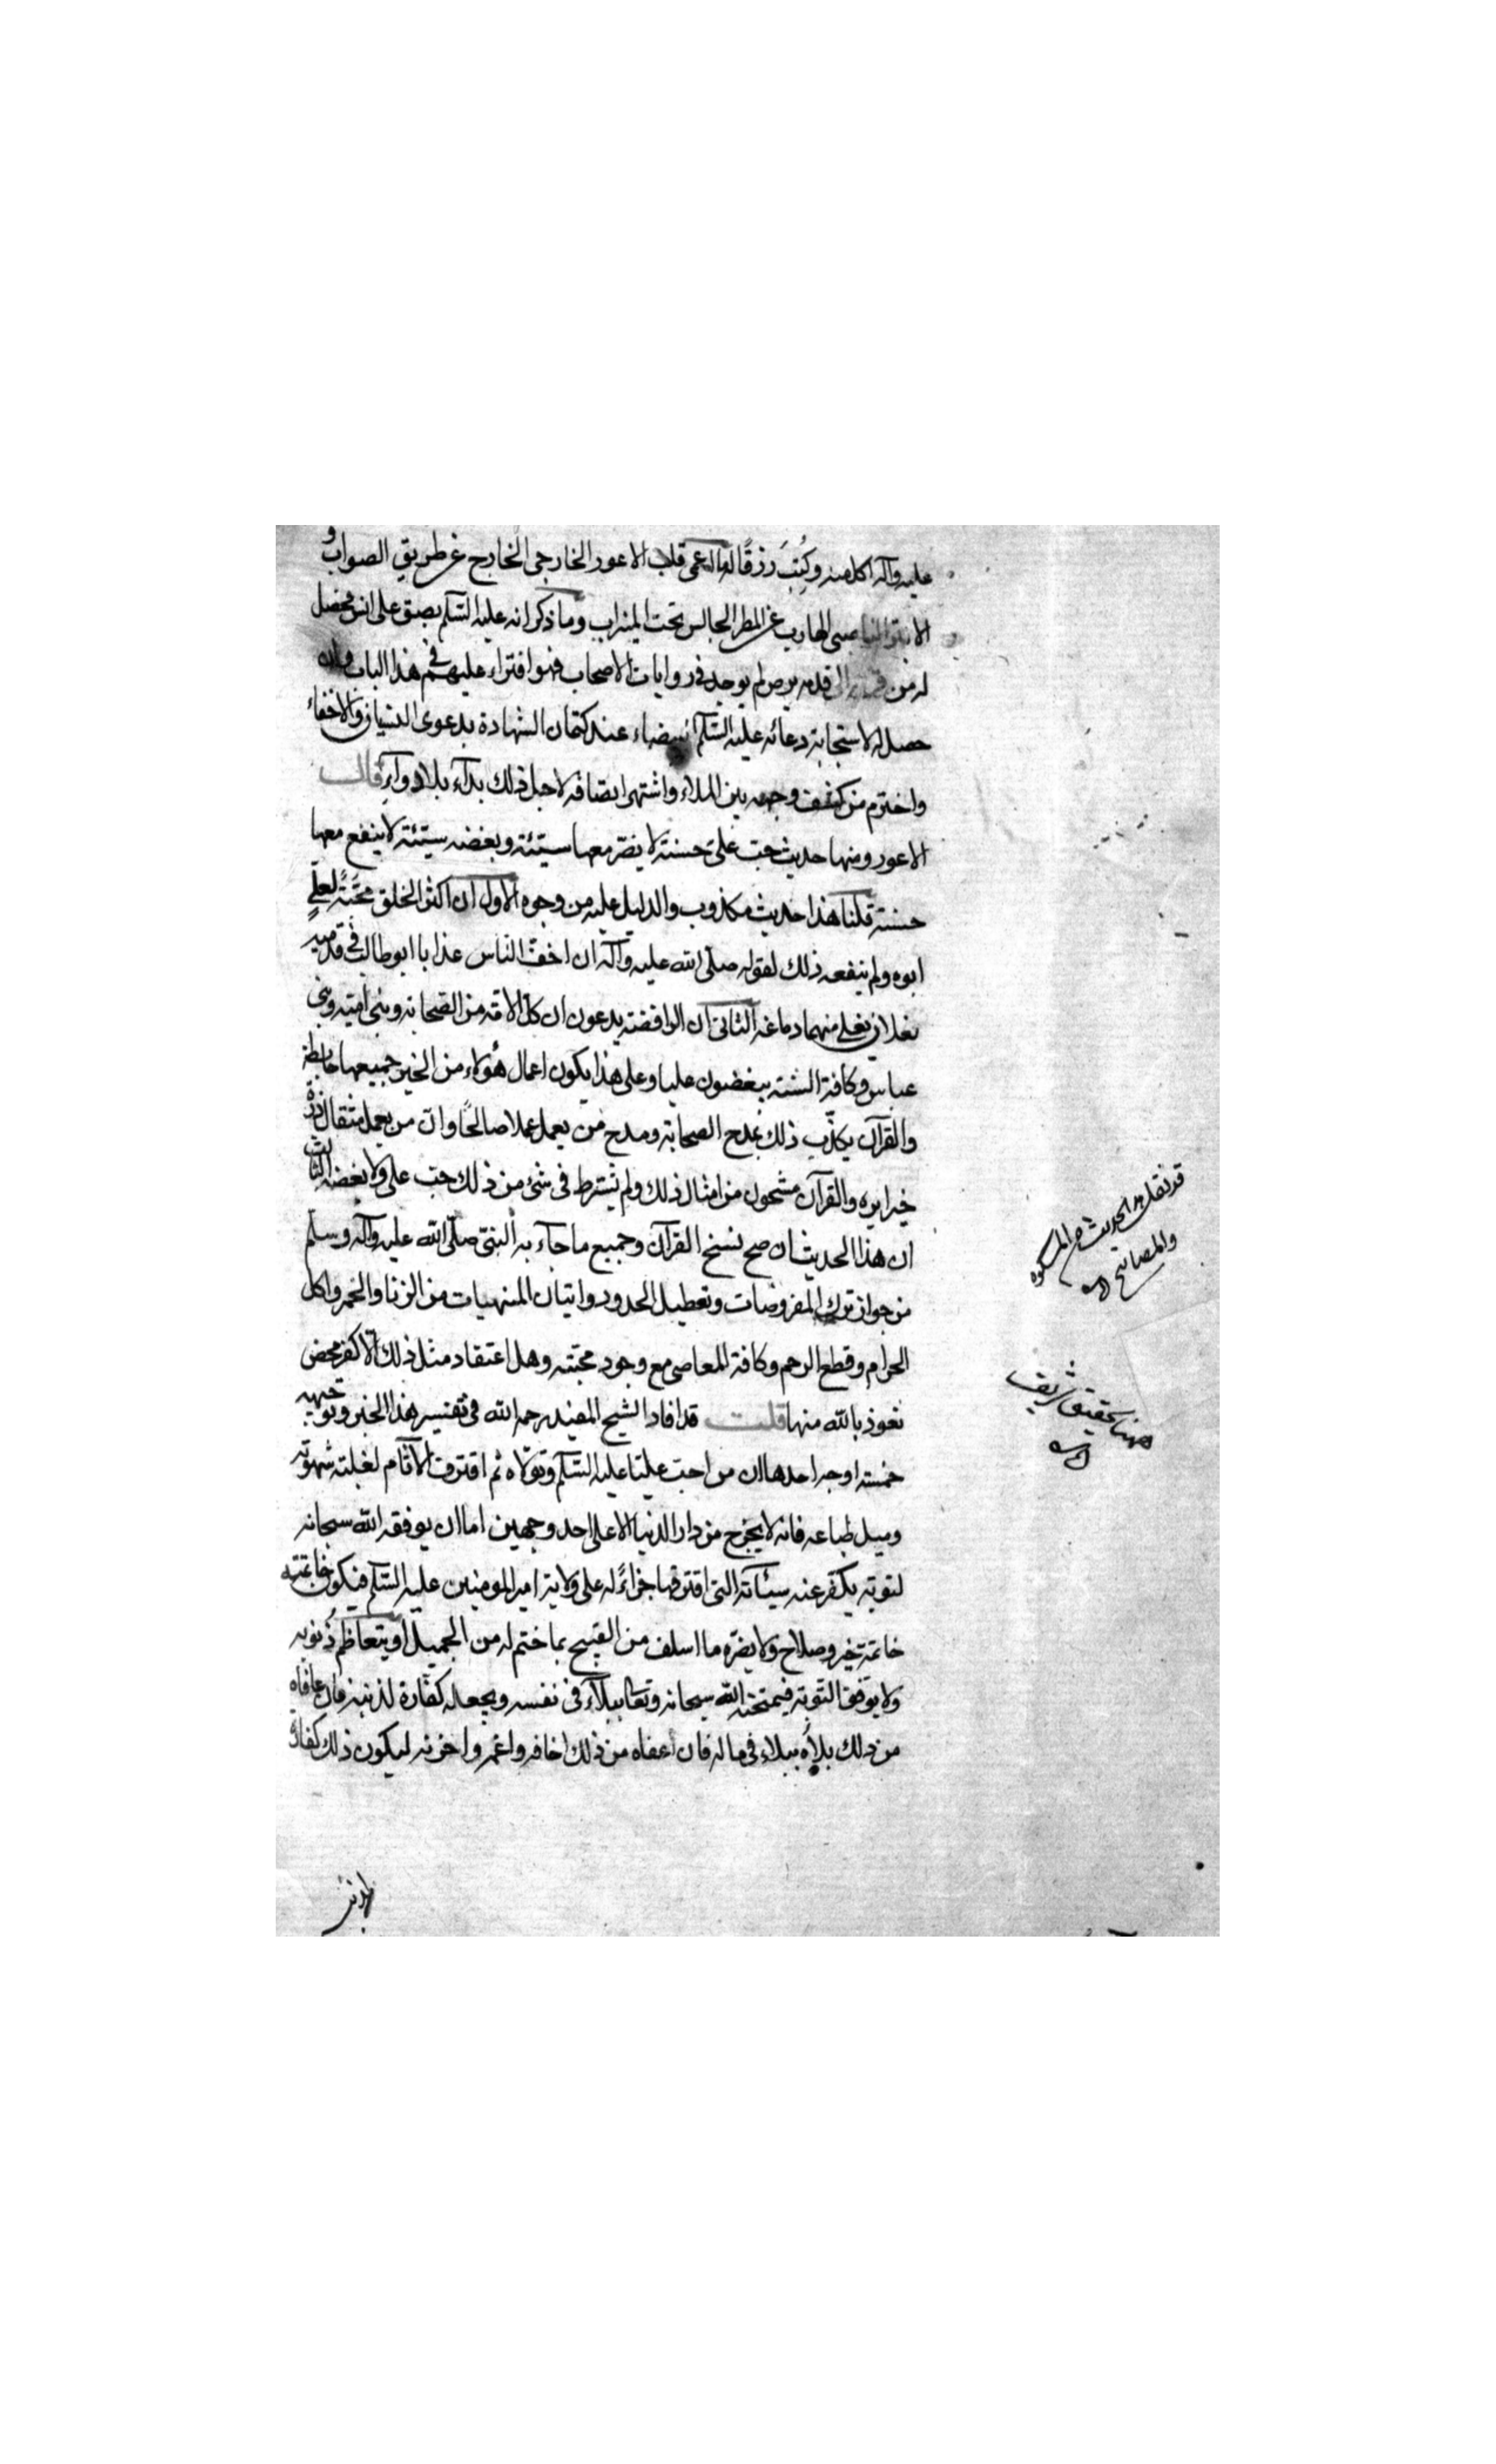 عليه وآله اكل منه وكُتِبَ رزقًا له عمى قلب الاعور الخارجى الخارج عن طريق الصواب و
الابتر الناصبى الهارب عن المطر الجالس تحت الميزاب وما ذكر انه عليه السّلم بصق على انس فحصل
له من الى قدمه برص لم يوجد فى روايات الاصحاب فهو افتراء عليهم فى هذا الباب وانه
حصل له لاستجابة دعائه عليه السّلم بيضاء عند كتمان الشهادة بدعوى النسيان والاخفاء
واخترم من كشف وجهه بين الملاء واشتهر لاجل ذلك بدآء بلا دوآء قال
الاعور ومنها حديث حبّ علىّ حسنة لا يضرّ معها سيّئة وبغضه سيّئة لا ينفع معها
حسنة قلنا هذا حديث مكذوب والدليل عليه من وجوه الاول ان اكثر الخلق محبّةً لعلىٍّ
ابوه ولم ينفعه ذلك لقوله صلّى الله عليه وآله ان اخفّ الناس عذابا ابو طالب فى قدميه
نعلان يغلى منهما دماغه الثانى ان الرافضة يدعون ان كل الامّة من الصحابة وبنى اميّة وبنى
عباس وكافة السّنّة يبغضون عليا وعلى هذا يكون اعمال هؤلاء من الخير جميعها حابطة
والقرآن يكذّب ذلك بمدح الصحابة ومدح من يعمل عملا صالحًا وان من يعمل مثقال ذرّة
خيرا يره والقرآن مشحون من امثال ذلك ولم يشترط فى شئ من ذلك حبّ على ولا بغضه الثالث
ان هذا الحديث ان صح نسخ القرآن وجميع ما جآء به النبىّ صلّى الله عليه وآله وسلم
من جواز ترك المفروضات وتعطيل الحدود واتيان المنهيات من الزنا والخمر واكل
الحرام وقطع الرحم وكافة المعاصى مع وجود محبّته وهل اعتقاد مثل ذلك الّا كفر محض
نعوذ بالله منها قلت قد افاد الشيخ المفيد رحمه الله فى تفسير هذا الخبر وتوجيهه
خمسة اوجه احدها ان من احبّ عليّا عليه السّلم وتولّاه ثم اقترف الآثام لغلبة شهوته
وميل طباعه فانه لا يخرج من دار الدنيا الا على احد وجهين اما ان يوفقه الله سبحانه
لتوبة يكفّر عنه سيئاته التى اقترفها جزاءً له على ولاية امير المومنين عليه السّلم فيكون خاتمته
خاتمة خير وصلاح ولا يضرّه ما اسلف من القبيح بما ختم له من الجميل او يتعاظم ذنوبه
ولا يوفّق التّوبة فيمتحنه الله سبحانه وتعالى ببلآء فى نفسه ويجعله كفّارة لذنبه فان عافاه
من ذلك بلاه ببلاء فى ماله فان اعفاه من ذلك اخافه واغمه واحزنه ليكون ذلك كفارة
قد نقل هذا الحديث المشكوة
والمصابيح
هنا تحقيق شريف
لذنبه